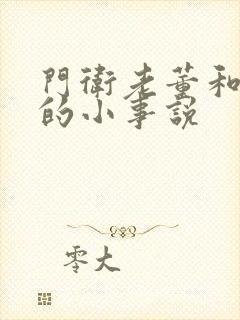 門衛老董和
的小事說
零大